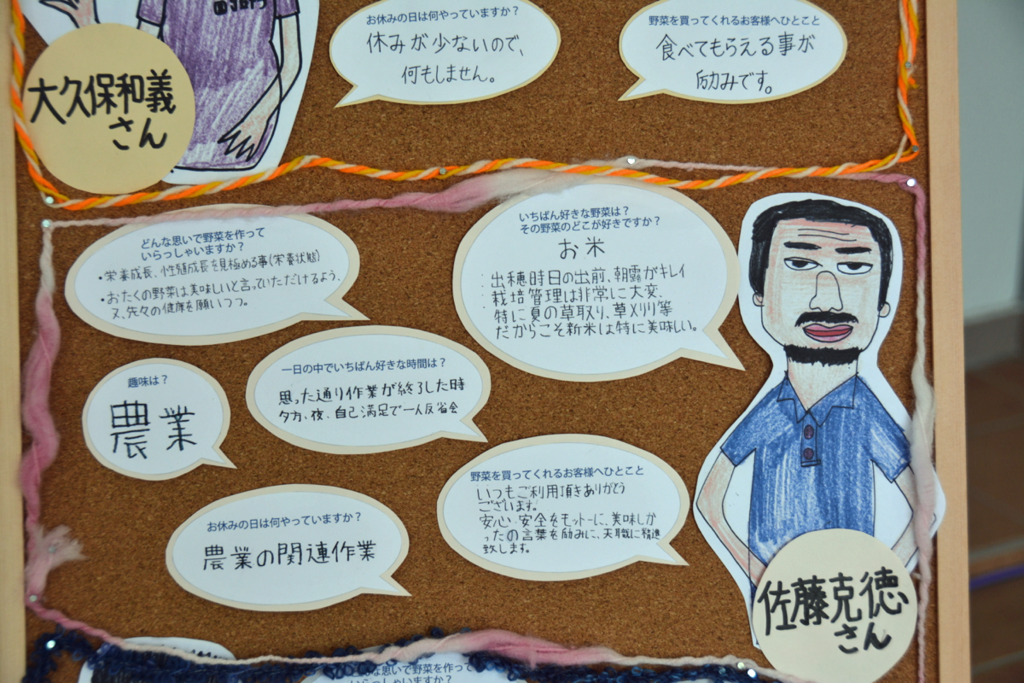 お休みの日は何やっていますか？
休みが少ないので、
何もしません。
野菜を買ってくれるお客様へひとこと
食べてもらえる事が
励みです。
大久保和義
さん
どんな思いで野菜を作って
いらっしゃいますか？
・栄養成長、生殖成長を見極める事(栄養状態)
・おたくの野菜は美味しいと言っていただけるよう、
又、先々の健康を願いつつ。
いちばん好きな野菜は？
その野菜のどこが好きですか？
お米
・出穂時日の出前、朝露がキレイ
・栽培管理は非常に大変、
特に夏の草取り、草刈り等
だからこそ新米は特に美味しい。
趣味は？
農業
一日の中でいちばん好きな時間は？
思った通り作業が終了した時
夕方、夜、自己満足で一人反省会
お休みの日は何やっていますか？
農業の関連作業
野菜を買ってくれるお客様へひとこと
いつもご利用頂きありがとう
ございます。
安心・安全をモットーに、美味しか
ったの言葉を励みに、天職に精進
致します。
佐藤克徳
さん
な思いで野菜を作って
いらっしゃいますか？